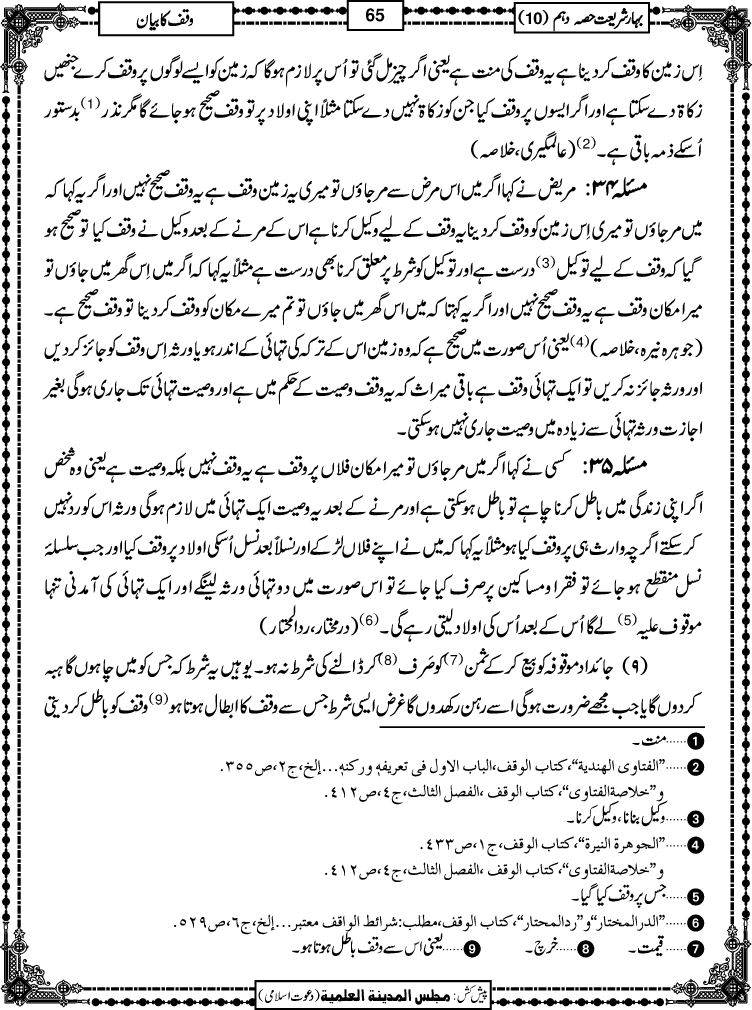 بہار شریعت حصہ دہم (10)
65
وقف کا بیان
اِس زمین کا وقف کر دینا ہے یہ وقف کی منت ہے یعنی اگر چیز مل گئی تو اُس پر لازم ہوگا کہ زمین کو ایسے لوگوں پر وقف کرے جنھیں
زکاۃ دے سکتا ہے اور اگر ایسوں پر وقف کیا جن کو زکاۃ نہیں دے سکتا مثلاً اپنی اولاد پر تو وقف صحیح ہو جائے گا مگر نذر (1) بدستور
اُسکے ذمہ باقی ہے۔ (2) (عالمگیری، خلاصہ)
مسئلہ ۳۴: مریض نے کہا اگر میں اس مرض سے مرجاؤں تو میری یہ زمین وقف ہے یہ وقف صحیح نہیں اور اگر یہ کہا کہ
میں مرجاؤں تو میری اِس زمین کو وقف کر دینا یہ وقف کے لیے وکیل کرنا ہے اس کے مرنے کے بعد وکیل نے وقف کیا تو صحیح ہو
گیا کہ وقف کے لیے توکیل (3) درست ہے اور توکیل کو شرط پر معلق کرنا بھی درست ہے مثلاً یہ کہا کہ اگر میں اِس گھر میں جاؤں تو
میرا مکان وقف ہے یہ وقف صحیح نہیں اور اگر یہ کہتا کہ میں اس گھر میں جاؤں تو تم میرے مکان کو وقف کر دینا تو وقف صحیح ہے۔
(جوہرہ نیرہ، خلاصہ) (4) یعنی اُس صورت میں صحیح ہے کہ وہ زمین اس کے ترکہ کی تہائی کے اندر ہو یا ورثہ اِس وقف کو جائز کر دیں
اور ورثہ جائز نہ کریں تو ایک تہائی وقف ہے باقی میراث کہ یہ وقف وصیت کے حکم میں ہے اور وصیت تہائی تک جاری ہوگی بغیر
اجازت ورثہ تہائی سے زیادہ میں وصیت جاری نہیں ہوسکتی۔
مسئلہ ۳۵: کسی نے کہا اگر میں مرجاؤں تو میرا مکان فلاں پر وقف ہے یہ وقف نہیں بلکہ وصیت ہے یعنی وہ شخص
اگر اپنی زندگی میں باطل کرنا چاہے تو باطل ہوسکتی ہے اور مرنے کے بعد یہ وصیت ایک تہائی میں لازم ہوگی ورثہ اس کو رد نہیں
کر سکتے اگرچہ وارث ہی پر وقف کیا ہو مثلاً یہ کہا کہ میں نے اپنے فلاں لڑکے اور نسلاً بعد نسل اُسکی اولاد پر وقف کیا اور جب سلسلۂ
نسل منقطع ہو جائے تو فقرا و مساکین پر صرف کیا جائے تو اس صورت میں دو تہائی ورثہ لینگے اور ایک تہائی کی آمدنی تنہا
موقوف علیہ (5) لے گا اُس کے بعد اُس کی اولاد لیتی رہے گی۔ (6) (درمختار، ردالمحتار)
(۹) جائداد موقوفہ کو بیع کر کے ثمن (7) کو صَرف (8) کر ڈالنے کی شرط نہ ہو۔ یوہیں یہ شرط کہ جس کو میں چاہوں گا ہبہ
کردوں گا یا جب مجھے ضرورت ہوگی اسے رہن رکھدوں گا غرض ایسی شرط جس سے وقف کا ابطال ہوتا ہو (9) وقف کو باطل کر دیتی
1......منت۔
2......”الفتاوی الھندیة“، کتاب الوقف، الباب الاول فی تعریفه ورکنه... إلخ، ج۲، ص۳۵۵.
و”خلاصة الفتاوی“، کتاب الوقف، الفصل الثالث، ج٤، ص٤١٢.
3......وکیل بنانا، وکیل کرنا۔
4......”الجوھرة النیرة“، کتاب الوقف، ج١، ص٤٣٣.
و”خلاصة الفتاوی“، کتاب الوقف، الفصل الثالث، ج٤، ص٤١٢.
5......جس پر وقف کیا گیا۔
6......”الدرالمختار“ و”ردالمحتار“، کتاب الوقف، مطلب: شرائط الواقف معتبر... إلخ، ج٦، ص٥٢٩.
7......قیمت۔ 8......خرچ۔ 9......یعنی اس سے وقف باطل ہوتا ہو۔
پیش کش: مجلس المدینة العلمیة (دعوت اسلامی)